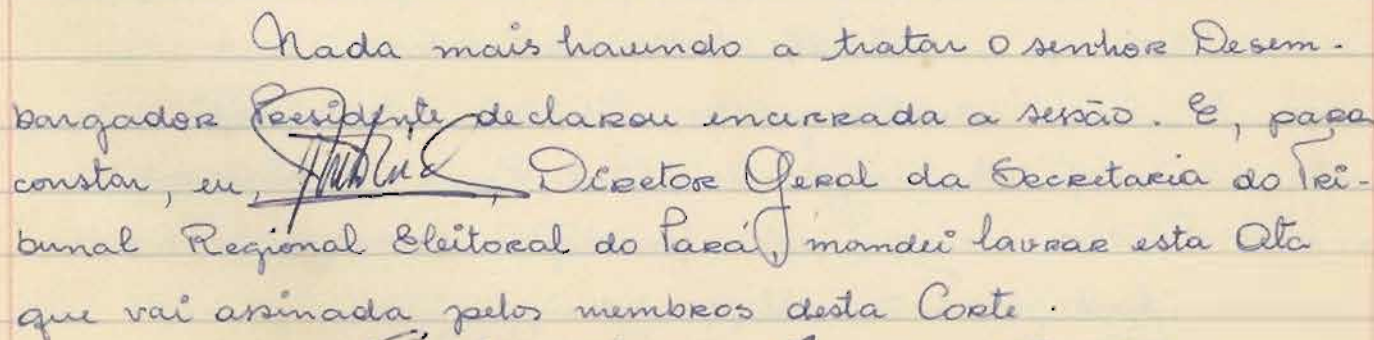 Nada mais havendo a tratar o senhor Desem-
bargador Presidente declarou encerrada a sessão. E, para
constar, eu, , Diretor Geral da Secretaria do Tri-
bunal Regional Eleitoral do Pará, mandei lavrar esta Ata
que vai assinada pelos membros desta Corte.